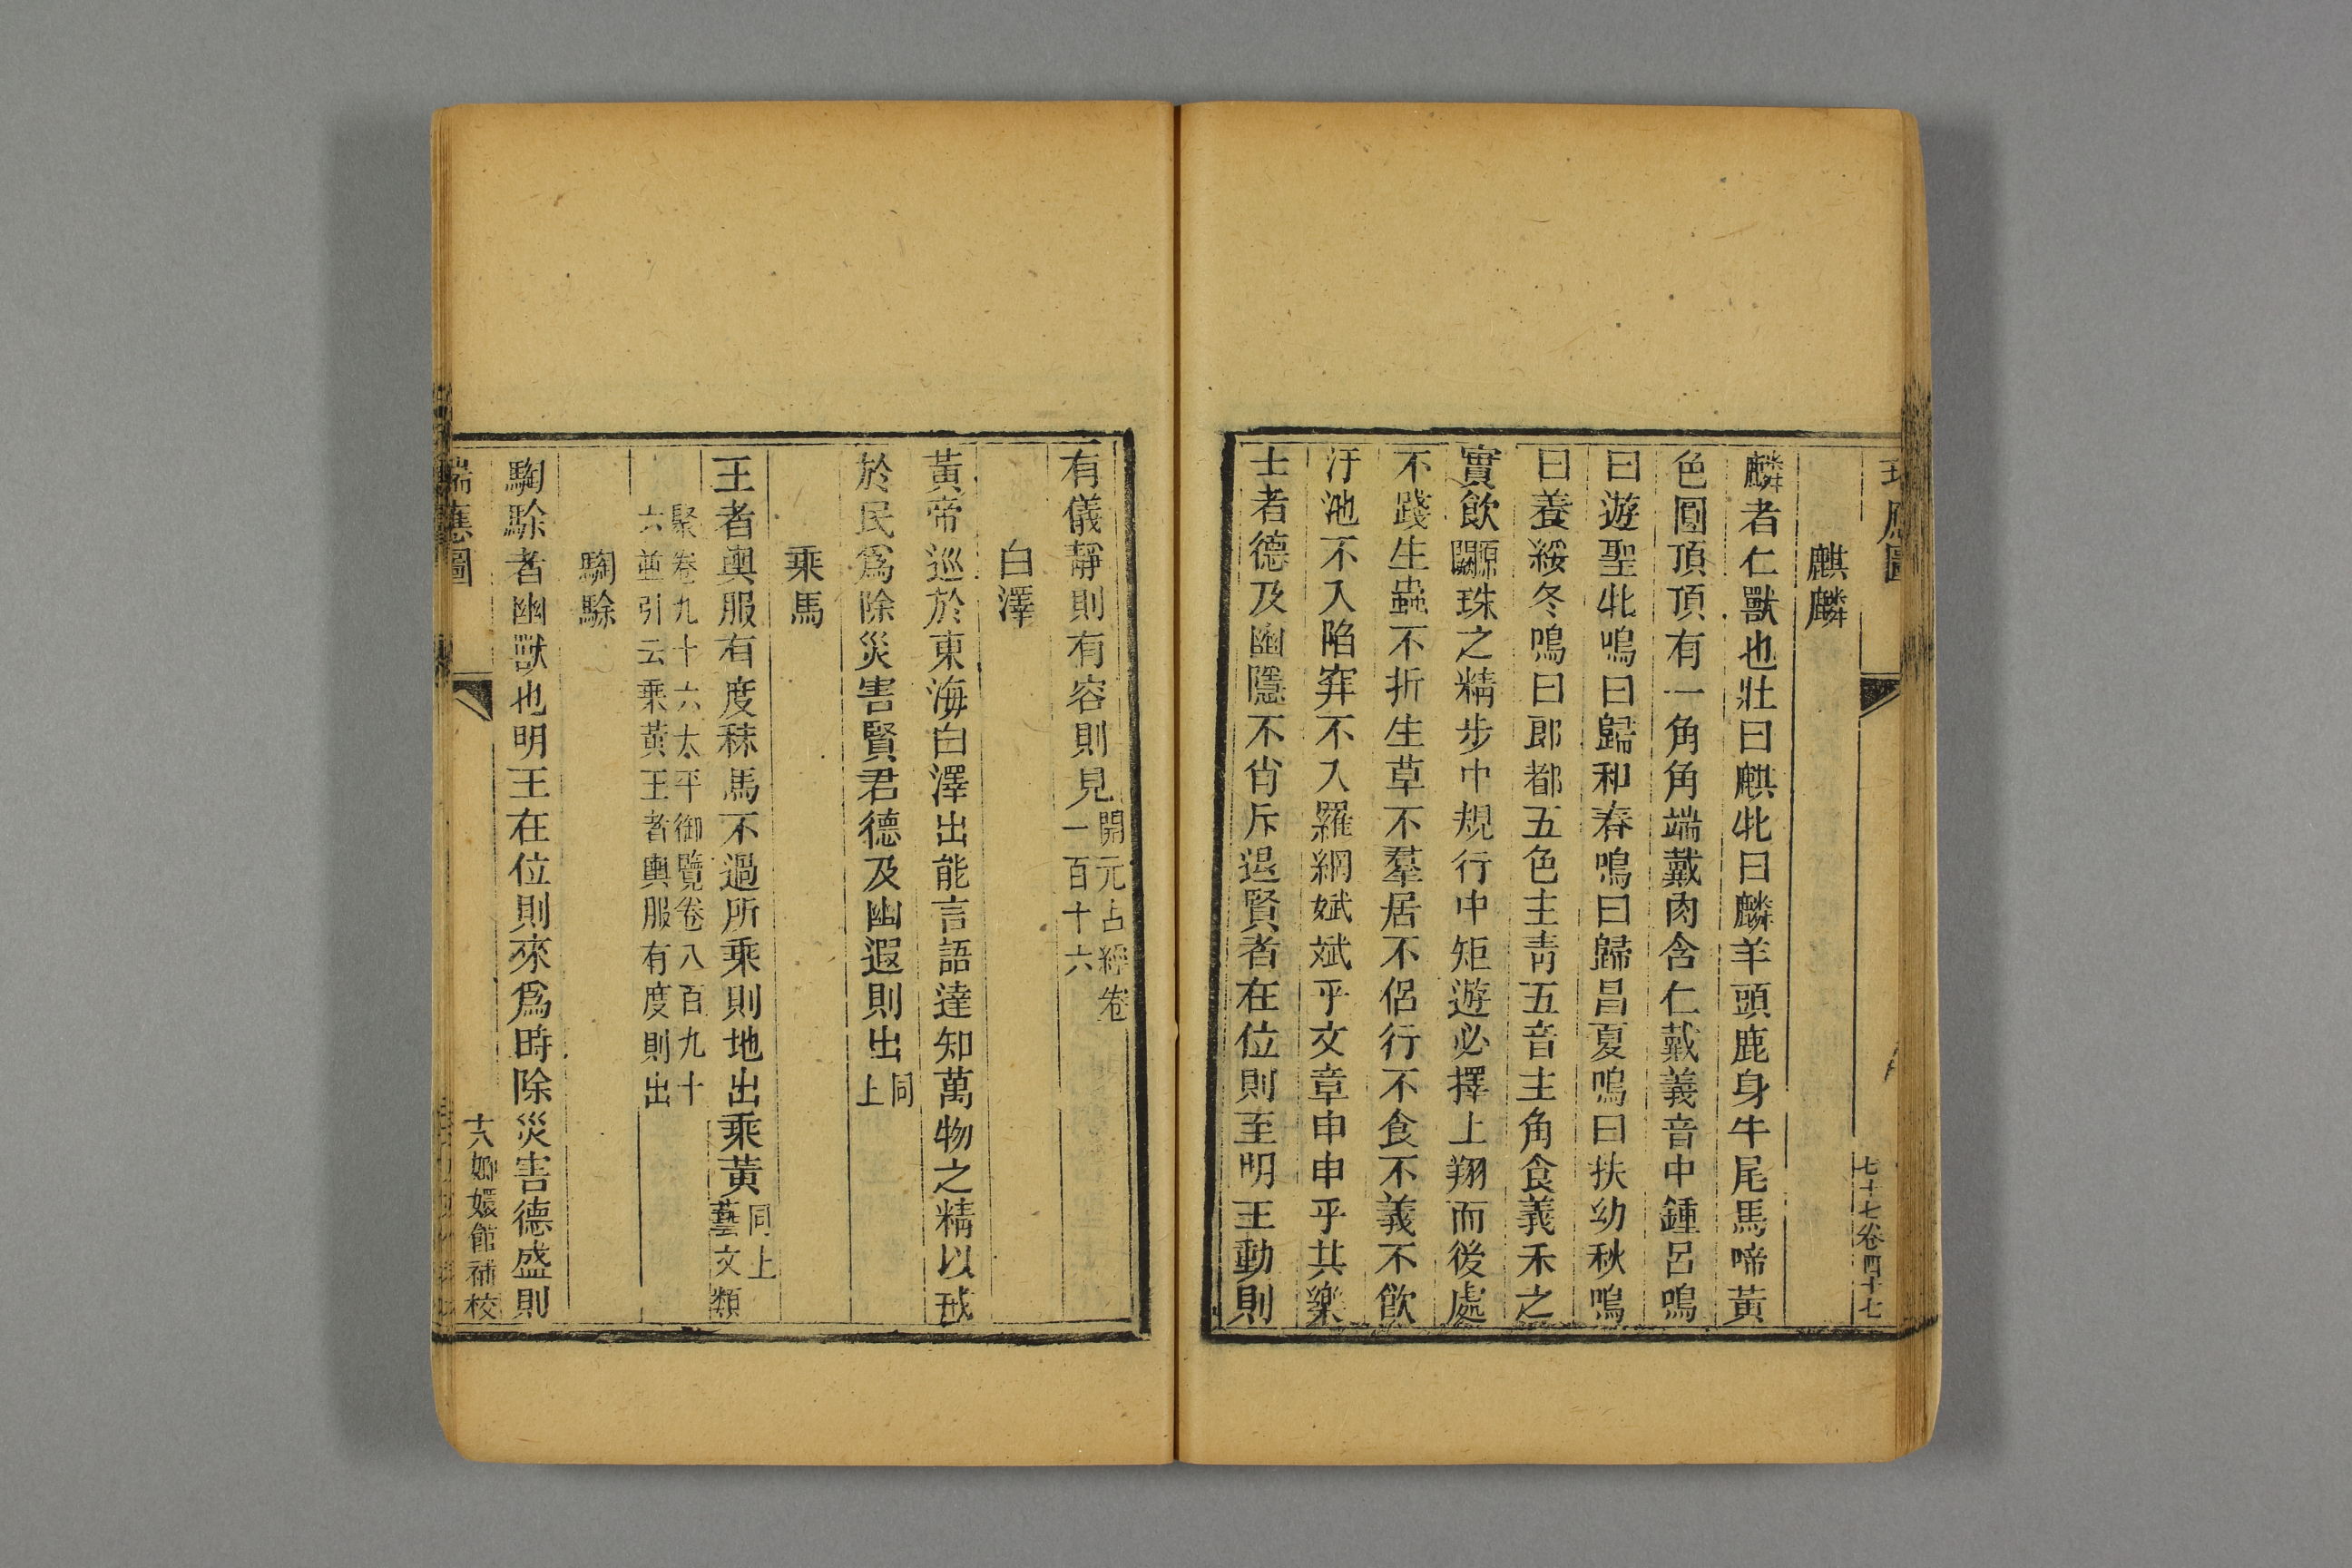 應圖
七十七卷四十七
麒麟
麟者仁獸也壯曰麒牝曰麟羊頭鹿身牛尾馬啼黃
色圓頂頂有一角角端戴肉含仁戴義音中鍾呂鳴
曰遊聖牝鳴曰歸和春鳴曰歸昌夏鳴曰扶幼秋鳴
曰養綏冬鳴曰郎都五色主青五音主角食義禾之
實飲原闕珠之精步中規行中矩遊必擇土翔而後處
不踐生蟲不折生草不羣居不侶行不食不義不飲
汙池不入陷穽不入羅網斌斌乎文章申申乎共樂
士者德及幽隱不肖斥退賢者在位則至明王動則
有儀靜則有容則見開元占經卷一百十六
白澤
黃帝巡於東海白澤出能言語達知萬物之精以戒
於民爲除災害賢君德及幽遐則出同上
乘馬
王者輿服有度秣馬不過所乘則地出乘黃同上藝文類
聚卷九十六太平御覽卷八百九十
六並引云乘黃王者輿服有度則出
騊駼
騊駼者幽獸也明王在位則來爲時除災害德盛則
瑞應圖
十八嫏嬛館補校